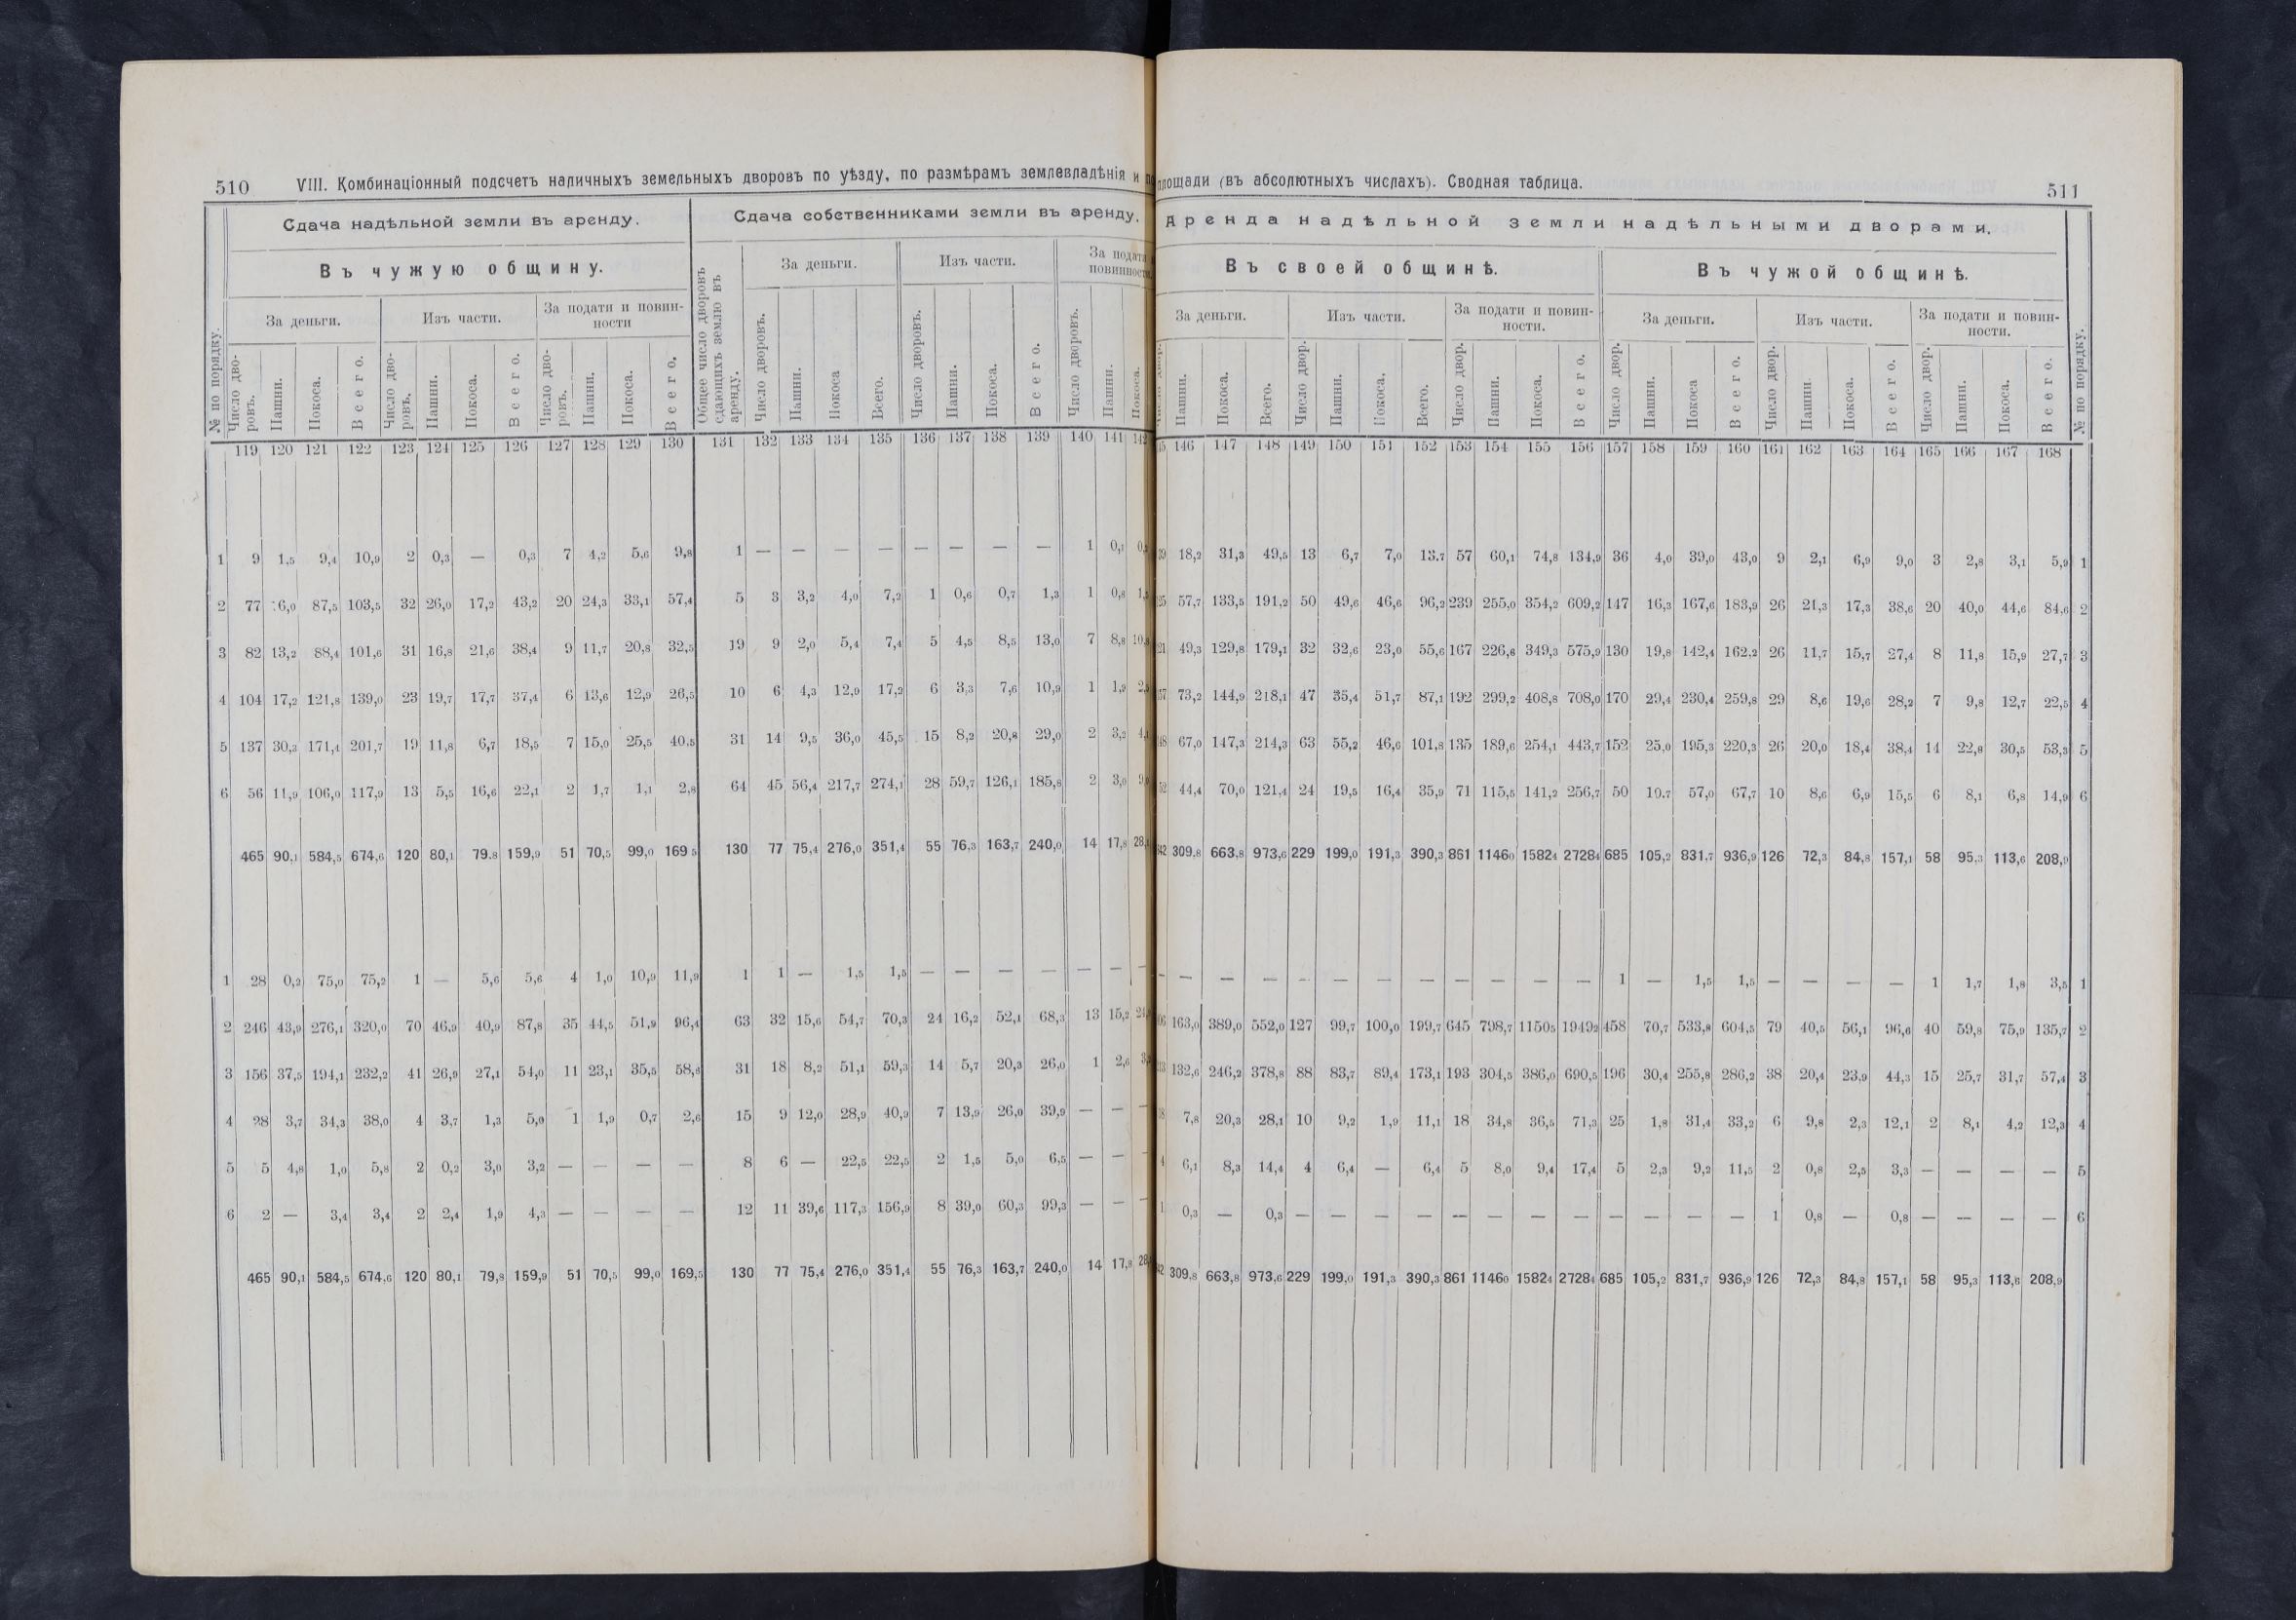 510 VIII. Комбинаціонный подсчетъ наличныхъ земельныхъ дворовъ по уѣзду, по размѣрамъ землевладѣнія и
площади (въ абсолютныхъ числахъ). Сводная таблица. 511
Сдача надѣльной земли въ аренду. Сдача собственниками земли въ аренду. Аренда надѣльной земли надѣльными дворами.
Въ чужую общину. За деньги. Изъ части. За подати повинности Въ своей общинѣ. Въ чужой общинѣ.
За деньги. Изъ части. За подати и повинности За деньги. Изъ части. За подати и повинности. За деньги. Изъ части. За подати и повинности.
№ по порядку. Число дворовъ. Пашни. Покоса. Всего. Число дворовъ. Пашни. Покоса. Всего. Число дворовъ. Пашни. Покоса. Всего. Общее число дворовъ сдающихъ землю въ аренду. Число дворовъ. Пашни. Покоса Всего. Число дворовъ. Пашни. Покоса. Всего. Число дворовъ. Пашни. Покоса.
Пашни. Покоса. Всего. Число двор. Пашни. Покоса. Всего. Число двор. Пашни. Покоса. Всего. Число двор. Пашни. Покоса Всего. Число двор. Пашни. Покоса. Всего. Число двор. Пашни. Покоса. Всего. № по порядку.
119 120 121 122 123 124 125 126 127 128 129 130 131 132 133 134 135 136 137 138 139 140 141 142
146 147 148 149 150 151 152 153 154 155 156 157 158 159 160 161 162 163 164 165 166 167 168
1 9 1,5 9,4 10,9 2 0,3 — 0,3 7 4,2 5,6 9,8 1 — — — — — — — — 1 0,1
18,2 31,3 49,5 13 6,7 7,0 13,7 57 60,1 74,8 134,9 36 4,0 39,0 43,0 9 2,1 6,9 9,0 3 2,8 3,1 5,9 1
2 77 16,0 87,5 103,5 32 26,0 17,2 43,2 20 24,3 33,1 57,4 5 3 3,2 4,0 7,2 1 0,6 0,7 1,3 1 0,8
57,7 133,5 191,2 50 49,6 46,6 96,2 239 255,0 354,2 609,2 147 16,3 167,6 183,9 26 21,3 17,3 38,6 20 40,0 44,6 84,6 2
3 82 13,2 88,4 101,6 31 16,8 21,6 38,4 9 11,7 20,8 32,5 19 9 2,0 5,4 7,4 5 4,5 8,5 13,0 7 8,8
49,3 129,8 179,1 32 32,6 23,0 55,6 167 226,6 349,3 575,9 130 19,8 142,4 162,2 26 11,7 15,7 27,4 8 11,8 15,9 27,7 3
4 104 17,2 121,8 139,0 23 19,7 17,7 37,4 6 13,6 12,9 26,5 10 6 4,3 12,9 17,2 6 3,3 7,6 10,9 1 1,9
73,2 144,9 218,1 47 35,4 51,7 87,1 192 299,2 408,8 708,0 170 29,4 230,4 259,8 29 8,6 19,6 28,2 7 9,8 12,7 22,5 4
5 137 30,3 171,4 201,7 19 11,8 6,7 18,5 7 15,0 25,5 40,5 31 14 9,5 36,0 45,5 15 8,2 20,8 29,0 2 3,2
67,0 147,3 214,3 63 55,2 46,6 101,8 135 189,6 254,1 443,7 152 25,0 195,3 220,3 26 20,0 18,4 38,4 14 22,8 30,5 53,3 5
6 56 11,9 106,0 117,9 13 5,5 16,6 22,1 2 1,7 1,1 2,8 64 45 56,4 217,7 274,1 28 59,7 126,1 185,8 2 3,0
44,4 70,0 121,4 24 19,5 16,4 35,9 71 115,5 141,2 256,7 50 10,7 57,0 67,7 10 8,6 6,9 15,5 6 8,1 6,8 14,9 6
465 90,1 584,5 674,6 120 80,1 79,8 159,9 51 70,5 99,0 169,5 130 77 75,4 276,0 351,4 55 76,3 163,7 240,0 14 17,8
309,8 663,8 973,6 229 199,0 191,3 390,3 861 1146,0 1582,4 2728,4 685 105,2 831,7 936,9 126 72,3 84,8 157,1 58 95,3 113,6 208,9
1 28 0,2 75,0 75,2 1 — 5,6 5,6 4 1,0 10,9 11,9 1 1 — 1,5 1,5 — — — — — — —
— — — — — — — — — — — — 1 — 1,5 1,5 — — — — 1 1,7 1,8 3,5 1
2 246 43,9 276,1 320,0 70 46,9 40,9 87,8 35 44,5 51,9 96,4 63 32 15,6 54,7 70,3 24 16,2 52,1 68,3 13 15,2
163,0 389,0 552,0 127 99,7 100,0 199,7 645 798,7 1150,5 1949,2 458 70,7 533,8 604,5 79 40,5 56,1 96,6 40 59,8 75,9 135,7 2
3 156 37,5 194,1 232,2 41 26,9 27,1 54,0 11 23,1 35,5 58,6 31 18 8,2 51,1 59,3 14 5,7 20,3 26,0 1 2,6
132,6 246,2 378,8 88 83,7 89,4 173,1 193 304,5 386,0 690,5 196 30,4 255,8 286,2 38 20,4 23,9 44,3 15 25,7 31,7 57,4 3
4 28 3,7 34,3 38,0 4 3,7 1,3 5,0 1 1,9 0,7 2,6 15 9 12,0 28,9 40,9 7 13,9 26,0 39,9 — — —
7,8 20,3 28,1 10 9,2 1,9 11,1 18 34,8 36,5 71,3 25 1,8 31,4 33,2 6 9,8 2,3 12,1 2 8,1 4,2 12,3 4
5 5 4,8 1,0 5,8 2 0,2 3,0 3,2 — — — — 8 6 — 22,5 22,5 2 1,5 5,0 6,5 — — —
6,1 8,3 14,4 4 6,4 — 6,4 5 8,0 9,4 17,4 5 2,3 9,2 11,5 2 0,8 2,5 3,3 — — — — 5
6 2 — 3,4 3,4 2 2,4 1,9 4,3 — — — — 12 11 39,6 117,3 156,9 8 39,0 60,3 99,3 — — —
0,3 — 0,3 — — — — — — — — — — — — 1 0,8 — 0,8 — — — — 6
465 90,1 584,5 674,6 120 80,1 79,8 159,9 51 70,5 99,0 169,5 130 77 75,4 276,0 351,4 55 76,3 163,7 240,0 14 17,8
309,8 663,8 973,6 229 199,0 191,3 390,3 861 1146,0 1582,4 2728,4 685 105,2 831,7 936,9 126 72,3 84,8 157,1 58 95,3 113,6 208,9